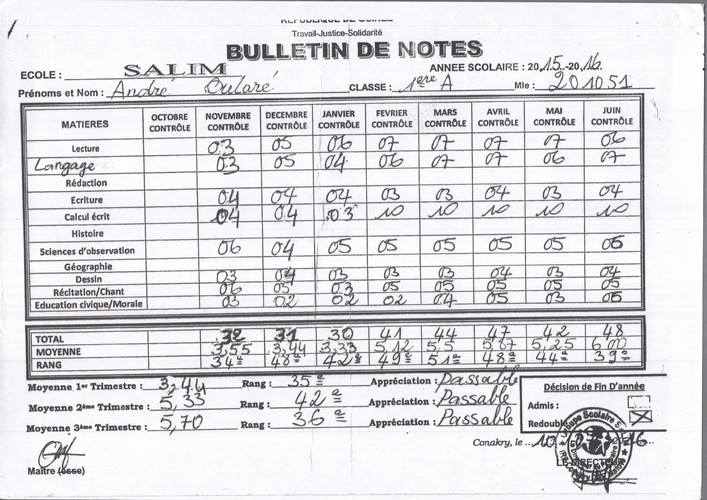 REPUBLIQUE DE GUINEE
Travail-Justice-Solidarité
BULLETIN DE NOTES
ECOLE : SALIM ANNEE SCOLAIRE : 2015-2016
Prénoms et Nom : André Oularé CLASSE : 1ere A Mle : 201051
MATIERES OCTOBRE CONTRÔLE NOVEMBRE CONTRÔLE DECEMBRE CONTRÔLE JANVIER CONTRÔLE FEVRIER CONTRÔLE MARS CONTRÔLE AVRIL CONTRÔLE MAI CONTRÔLE JUIN CONTRÔLE
Lecture 03 05 06 07 07 07 07 06
Langage 03 05 04 06 07 07 06 07
Rédaction
Ecriture 04 04 04 03 03 04 03 04
Calcul écrit 04 04 03 10 10 10 10 10
Histoire
Sciences d'observation 06 04 05 05 05 05 05 06
Géographie
Dessin 03 04 03 03 03 04 03 04
Récitation/Chant 06 05 05 05 05 05 05 05
Education civique/Morale 03 02 02 02 04 05 03 06
TOTAL 32 31 30 41 44 47 42 48
MOYENNE 3,55 3,44 3,33 5,12 5,5 5,87 5,25 6,00
RANG 34e 48e 42e 49e 51e 48e 44e 39e
Moyenne 1er Trimestre : 3,44 Rang : 35e Appréciation : Passable
Moyenne 2ème Trimestre : 5,33 Rang : 42e Appréciation : Passable
Moyenne 3ème Trimestre : 5,70 Rang : 36e Appréciation : Passable
Décision de Fin D'année
Admis :
Redouble
Conakry, le
Maître (sse)